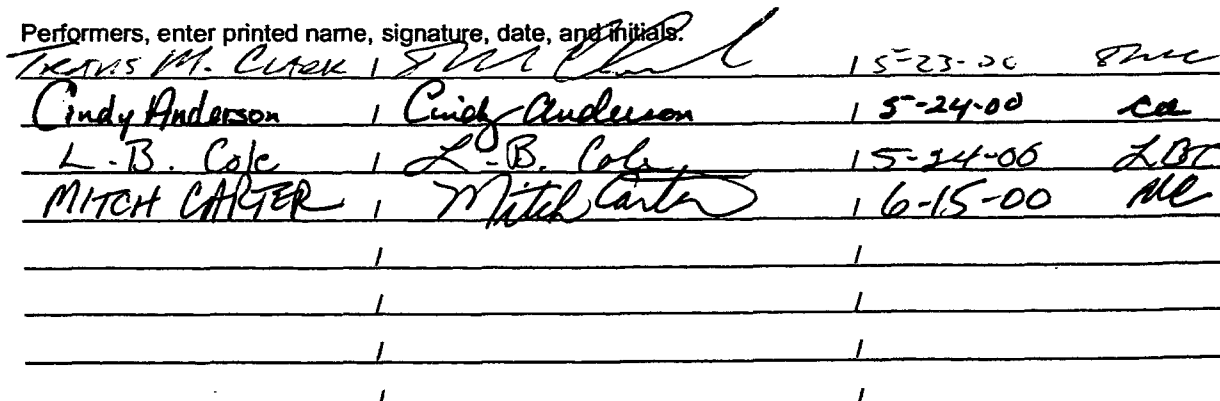 Performers, enter printed name, signature, date, and initials:
Travis M. Clark / TM Clark / 5-23-00 TMC
Cindy Anderson / Cindy Anderson / 5-24-00 ca
L.B. Cole / L.B. Cole / 5-24-00 LBC
MITCH CARTER / Mitch Carter / 6-15-00 MC
/ /
/ /
/ /
/ /